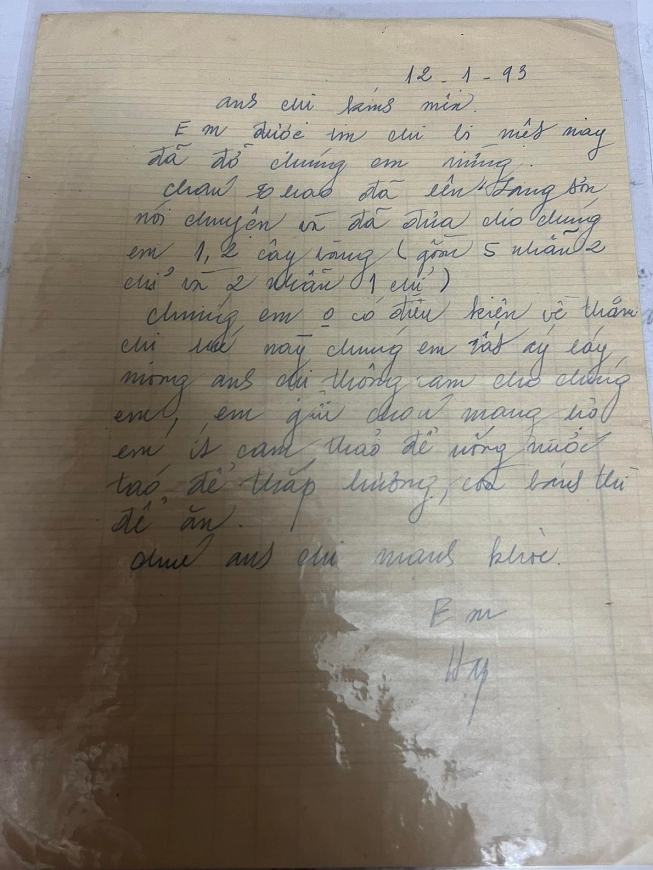 12-1-93
anh chị kính mến.
Em được tin chị bị mệt này
đã đỡ chúng em mừng.
cháu Thao đã lên Lạng Sơn
nói chuyện và đã đưa cho chúng
em 1,2 cây vàng (gồm 5 nhẫn 2
chỉ và 2 nhẫn 1 chỉ)
chúng em o có điều kiện về thăm
chị lúc này chúng em rất áy láy
mong anh chị thông cảm cho chúng
em, em gửi cháu mang hộ
em ít cam thảo để uống nước
táo để thắp hương, còn bánh thì
để ăn.
chúc anh chị mạnh khỏe.
Em